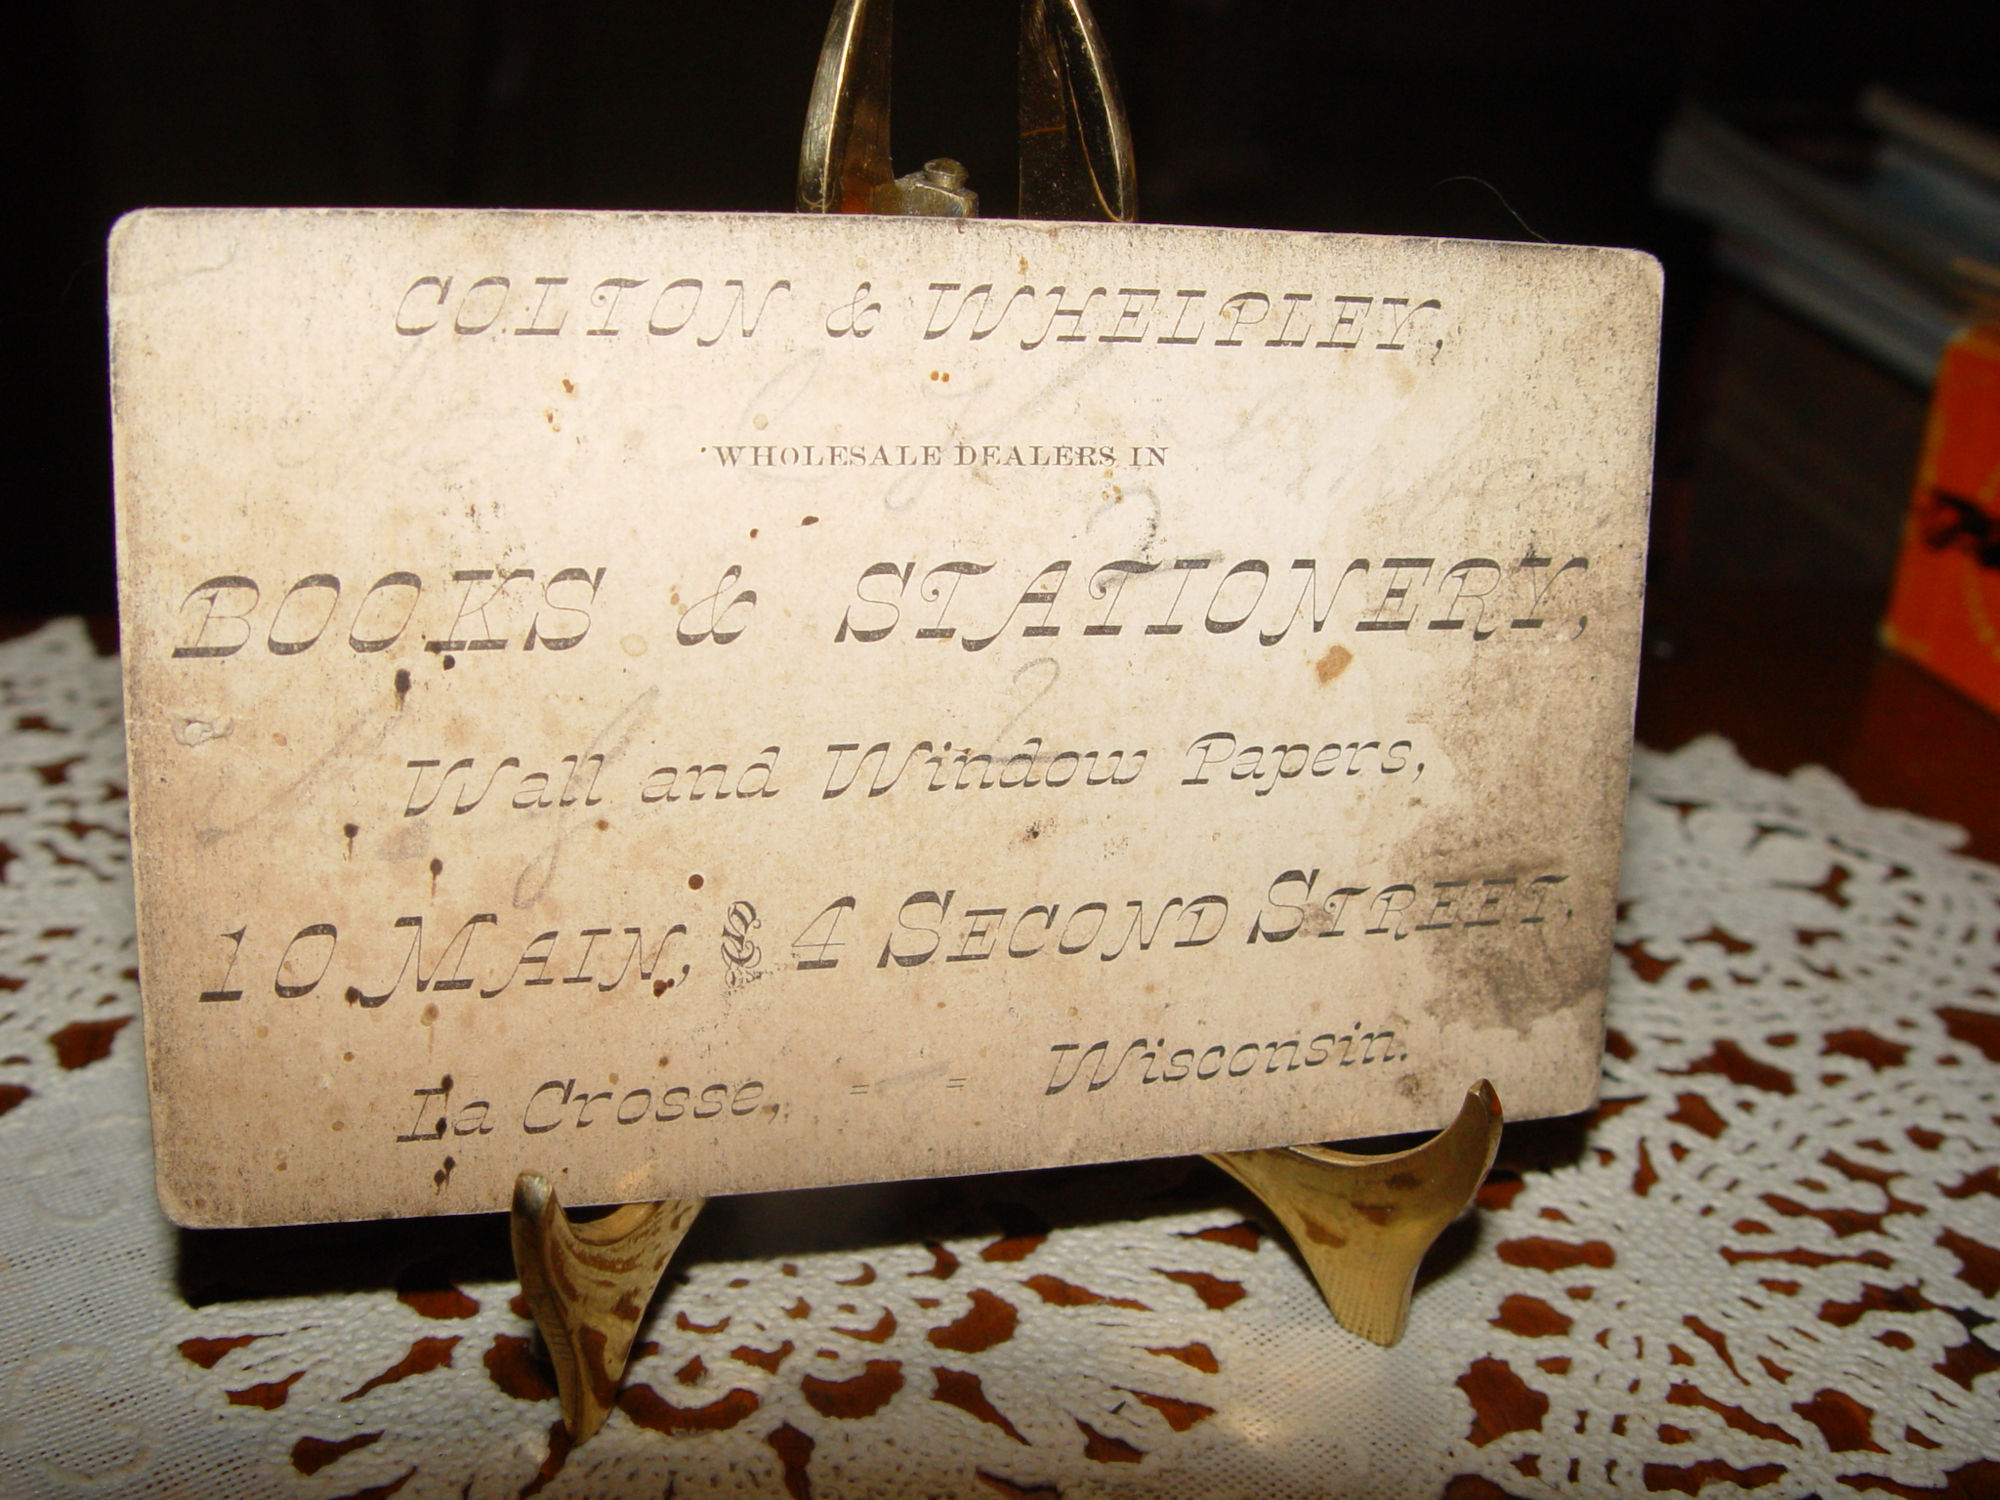 COLTON & WHELPLEY,
WHOLESALE DEALERS IN
BOOKS & STATIONERY,
Wall and Window Papers,
10 MAIN, & 4 SECOND STREET,
La Crosse, = = Wisconsin.